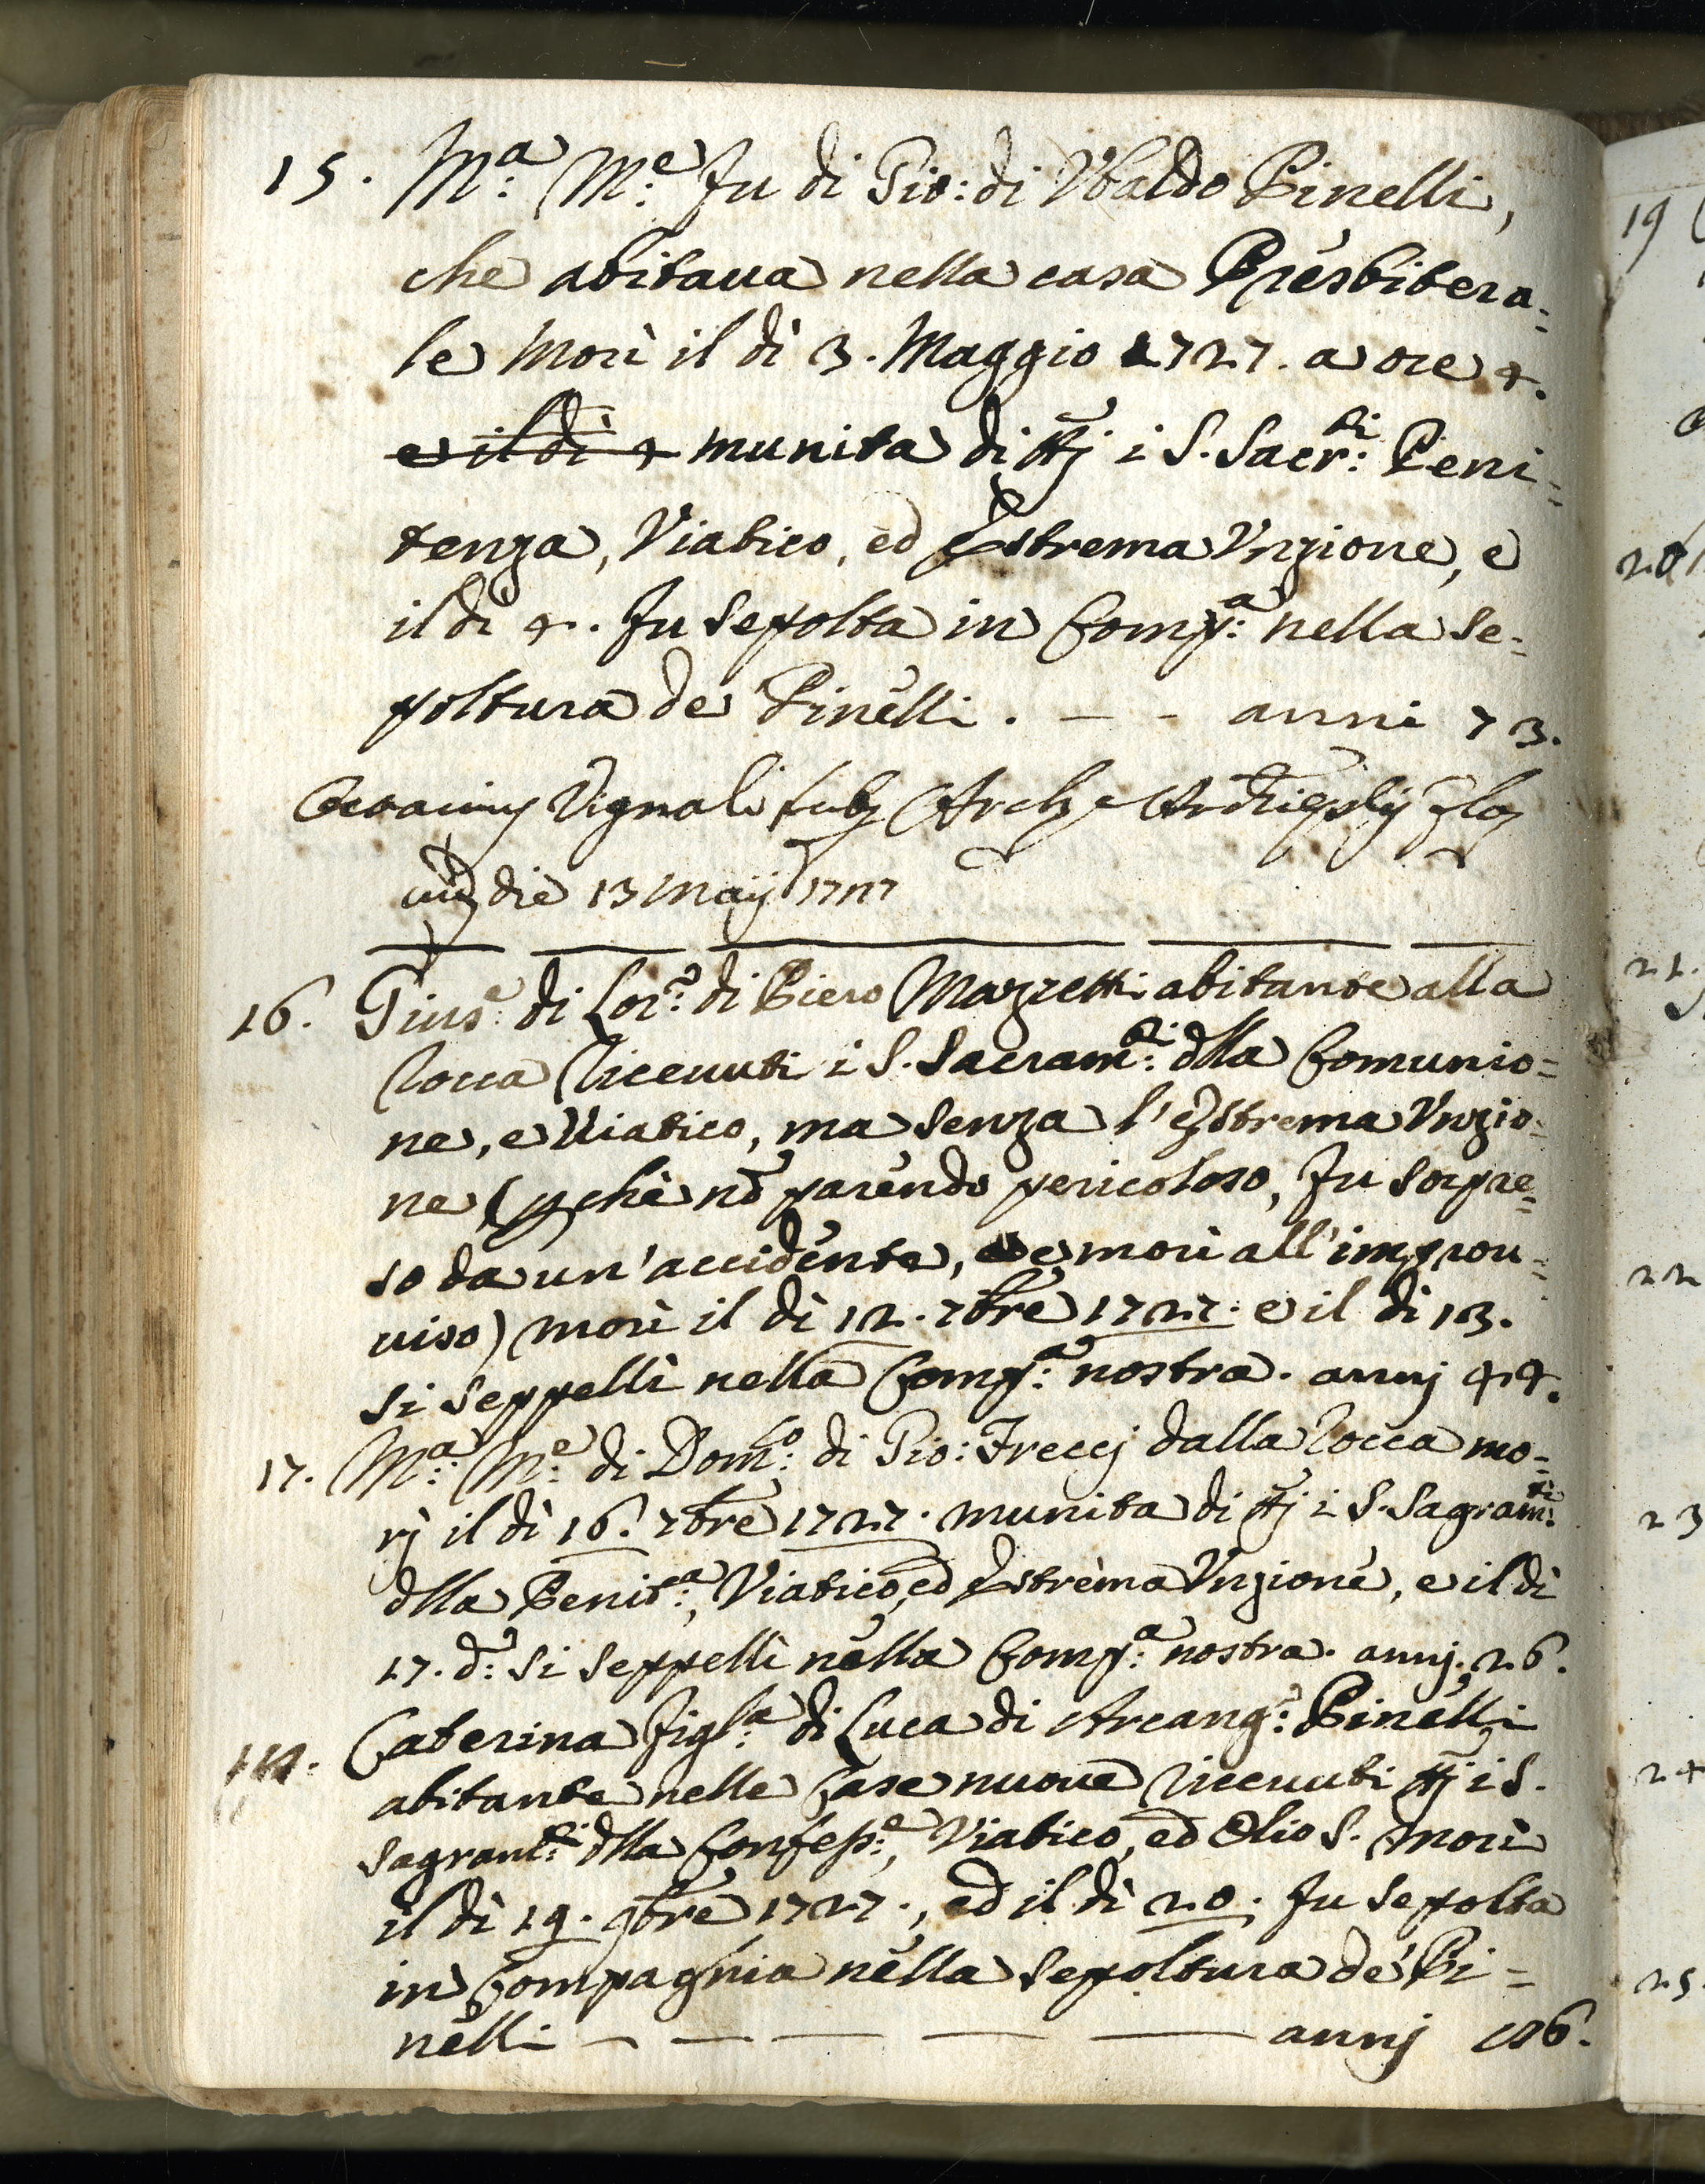 15. M:ª M:ᵉ fu di Gio: di Vbaldo Pinelli,
che abitaua nella casa Presbitera=
le morì il dì 3. Maggio 1727. a ore 4.
e il dì 4 munita di ttj i S. Sacr:ti Peni=
tenza, Viatico, ed Estrema Vnzione, e
il dì 4. fu sepolta in Comp:ª nella se=
poltura de Pinelli. - - anni 73.
Vignali
die 13 Maij 1727
16. Gius:ᵉ di Lor:º di Piero Mazzetti abitante alla
Rocca riceuuti i S. Sacram:ti dlla Comunio=
ne, e Viatico, ma senza l'Estrema Vnzio=
ne (pchè nõ parendo pericoloso, fu sorpre=
so da un'accidente, e morì all'improu=
uiso) morì il dì 12. 7bre 1727. e il dì 13.
si seppellì nella Comp:ª nostra. annj 44.
17. M:ª M:ᵉ di Dom:co di Gio: Freccj dalla Rocca mo=
rj il dì 16. 7bre 1727. munita di ttj i S. Sagram:ti
dlla Penit:ª, Viatico, ed Estrema Vnzione, e il dì
17. d:º si seppellì nella Comp:ª nostra. annj. 26.
18. Caterina figl:ª di Luca di Arcang:º Pinelli
abitante nelle Case nuoue riceuuti ttj i S.
Sagram:ti dlla Confess:ᵉ, Viatico, ed Olio S. morì
il dì 19. 9bre 1727., ed il dì 20. fu sepolta
in Compagnia nella sepoltura de' Pi=
nelli - - - - - annj 86.
19
20
21.
22
23
24
25